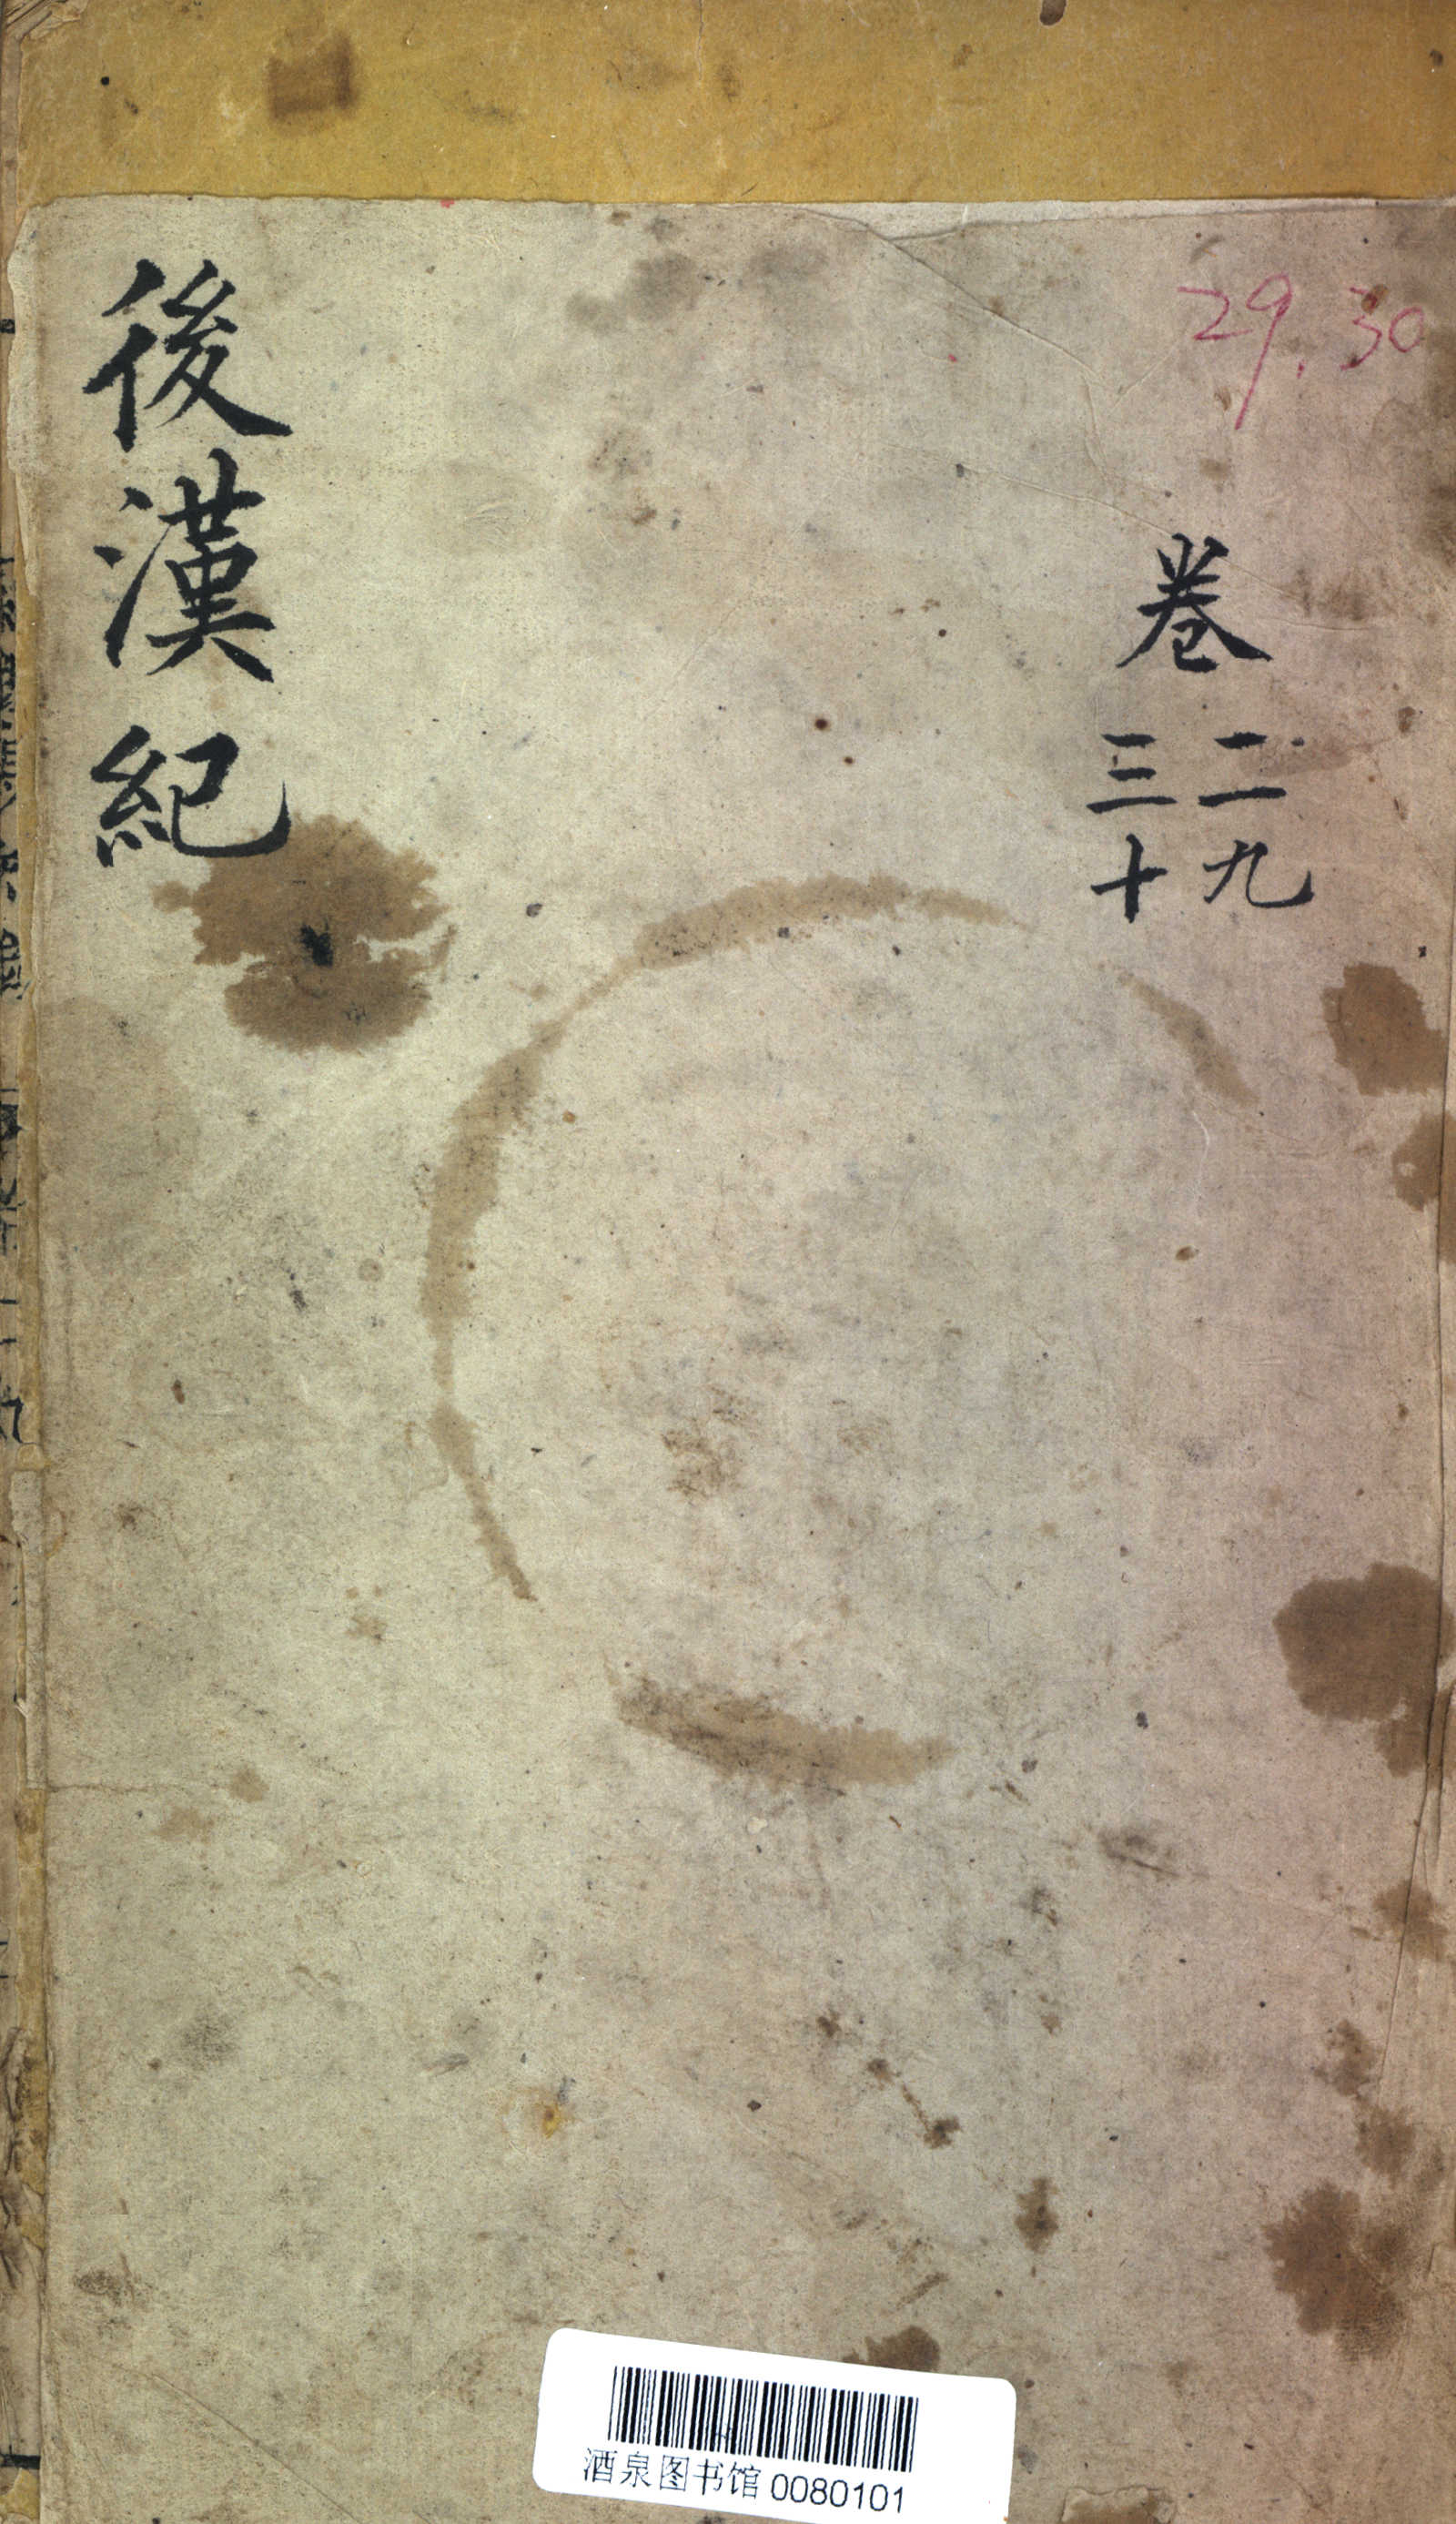 29.30
卷
二九
三十
後漢紀
酒泉图书馆 0080101